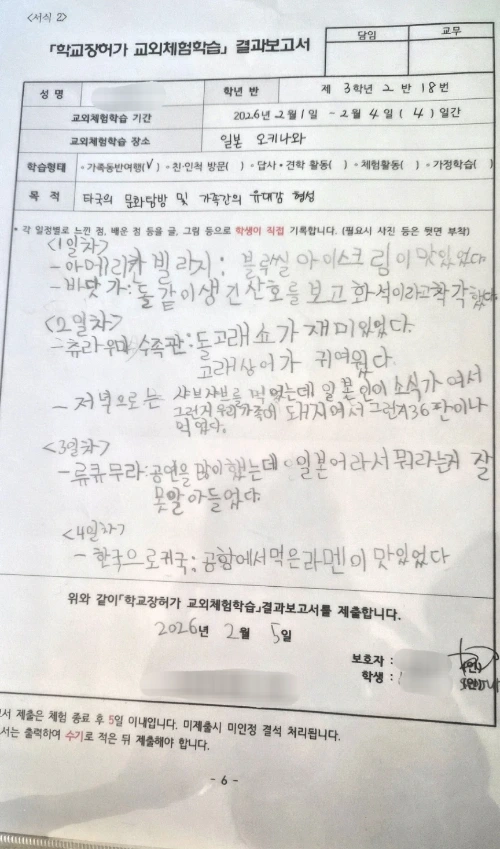 <서식 2>
「학교장허가 교외체험학습」 결과보고서
담임 교무
성 명 학년 반 제 3학년 2 반 18번
교외체험학습 기간 2026년 2월 1일 - 2월 4일 ( 4 ) 일간
교외체험학습 장소 일본 오키나와
학습형태 ∘가족동반여행(√) ∘친·인척 방문( ) ∘답사∘견학 활동( ) ∘체험활동( ) ∘가정학습( )
목 적 타국의 문화탐방 및 가족간의 유대감 형성
* 각 일정별로 느낀 점, 배운 점 등을 글, 그림 등으로 학생이 직접 기록합니다. (필요시 사진 등은 뒷면 부착)
<1일차>
- 아메리칸 빌리지: 블루씰 아이스크림이 맛있었다.
- 바닷가: 돌같이 생긴 산호를 보고 화석이라고 착각했다.
<2일차>
- 츄라우미 수족관: 돌고래 쇼가 재미있었다.
고래상어가 귀여웠다.
- 저녁으로는 샤브샤브를 먹었는데 일본인이 소식가여서
그런지 우리가족이 돼지여서 그런지 36판이나
먹었다.
<3일차>
- 류큐무라: 공연을 많이했는데 일본어라서 뭐라는지 잘
못알아들었다.
<4일차>
- 한국으로 귀국: 공항에서 먹은 라멘이 맛있었다
위와 같이「학교장허가 교외체험학습」결과보고서를 제출합니다.
2026년 2월 5일
보호자 : (인)
학생 : (인)
서 제출은 체험 종료 후 5일 이내입니다. 미제출시 미인정 결석 처리됩니다.
서는 출력하여 수기로 적은 뒤 제출해야 합니다.
- 6 -